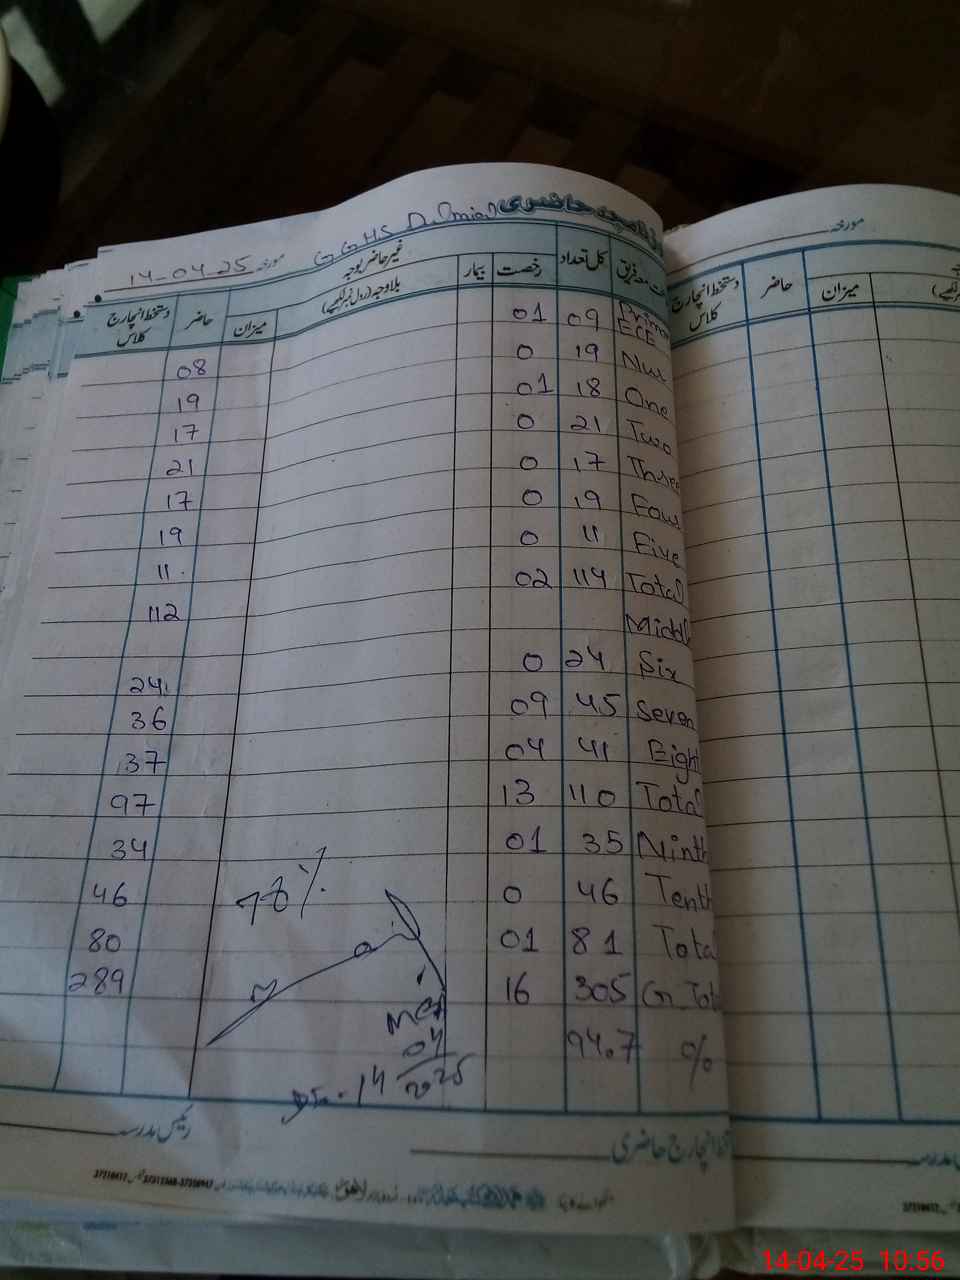 روزنامچہ حاضری
GGHS
مورخہ 14-04-25
کل تعداد رخصت بیمار غیر حاضر بوجہ بلا وجہ (رول نمبر لکھیے) میزان حاضر دستخط انچارج کلاس
ECE 09 01 08
Nur 19 0 19
One 18 01 17
Two 21 0 21
Three 17 0 17
Four 19 0 19
Five 11 0 11
Total 114 02 112
Middle
Six 24 0 24
Seven 45 09 36
Eight 41 04 37
Total 110 13 97
Ninth 35 01 34
Tenth 46 0 46
Total 81 01 80
G Tot 305 16 289
% 94.7
14
04
2025
انچارج حاضری
رئیس مدرسہ
مورخہ
میزان حاضر دستخط انچارج کلاس
14-04-25 10:56